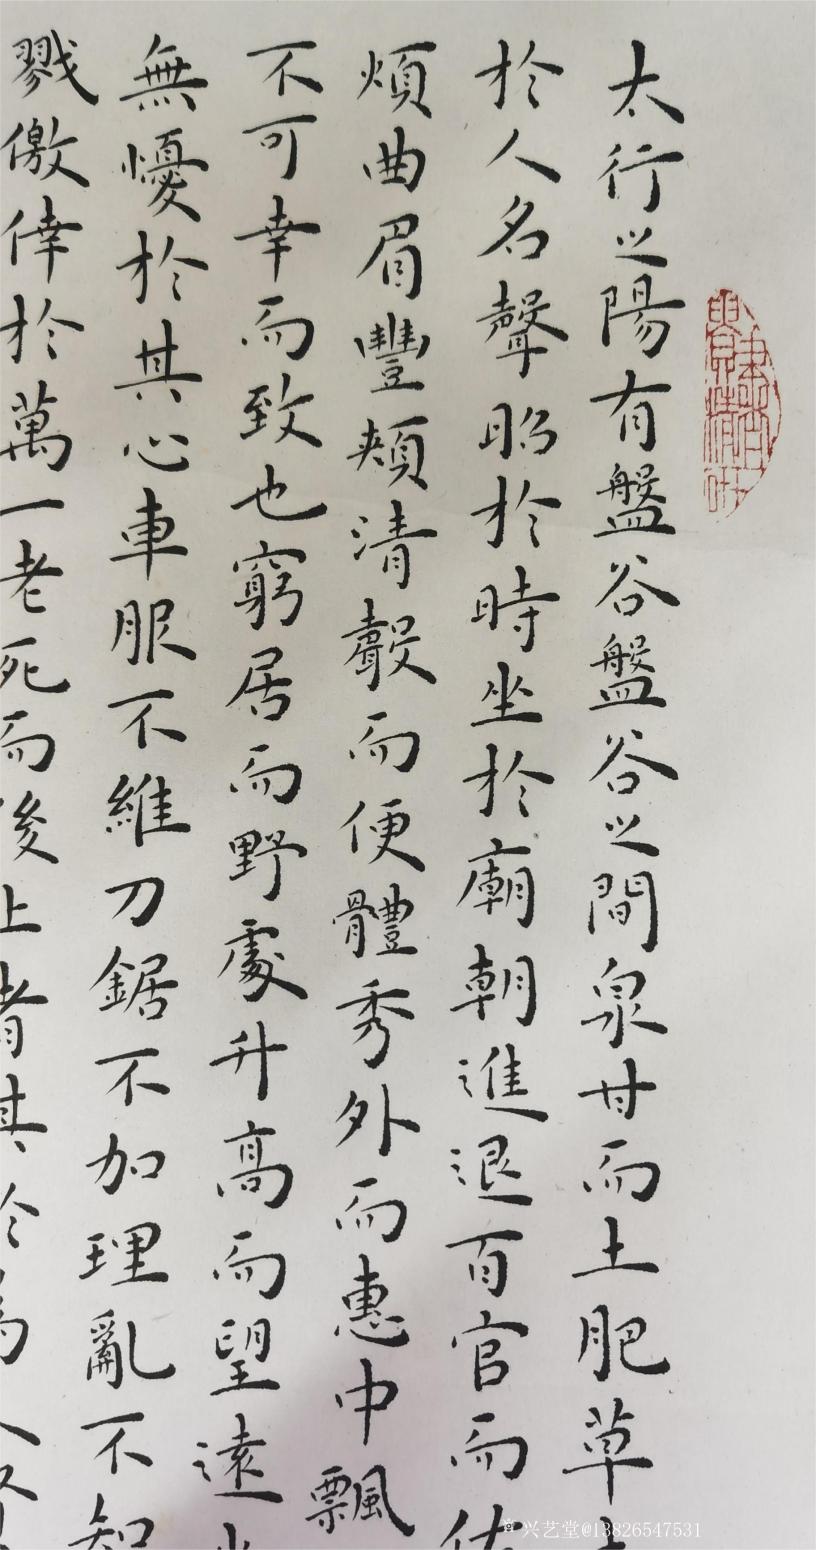 太行之陽有盤谷盤谷之間泉甘而土肥草
於人名聲昭於時坐於廟朝進退百官而佐
煩曲眉豐頰清聲而便體秀外而惠中飄
不可幸而致也窮居而野處升高而望遠
無憂於其心車服不維刀鋸不加理亂不知
戮僥倖於萬一老死而後止者其於為人
兴艺堂@13826547531